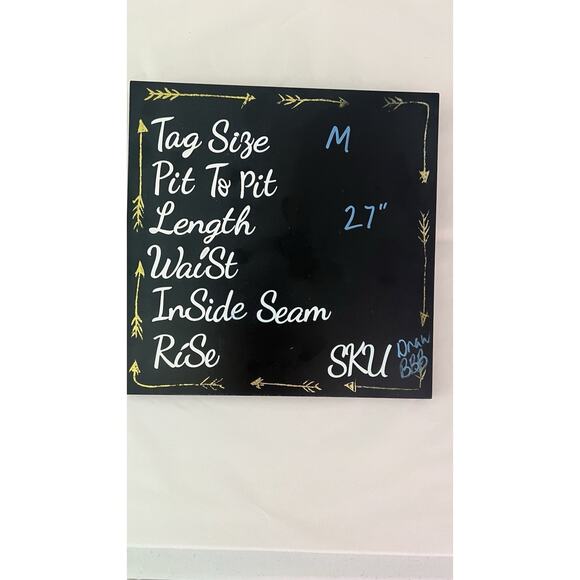 Tag Size M
Pit To Pit
Length 27"
WaiSt
InSide Seam
RiSe
SKU Draw
BBB